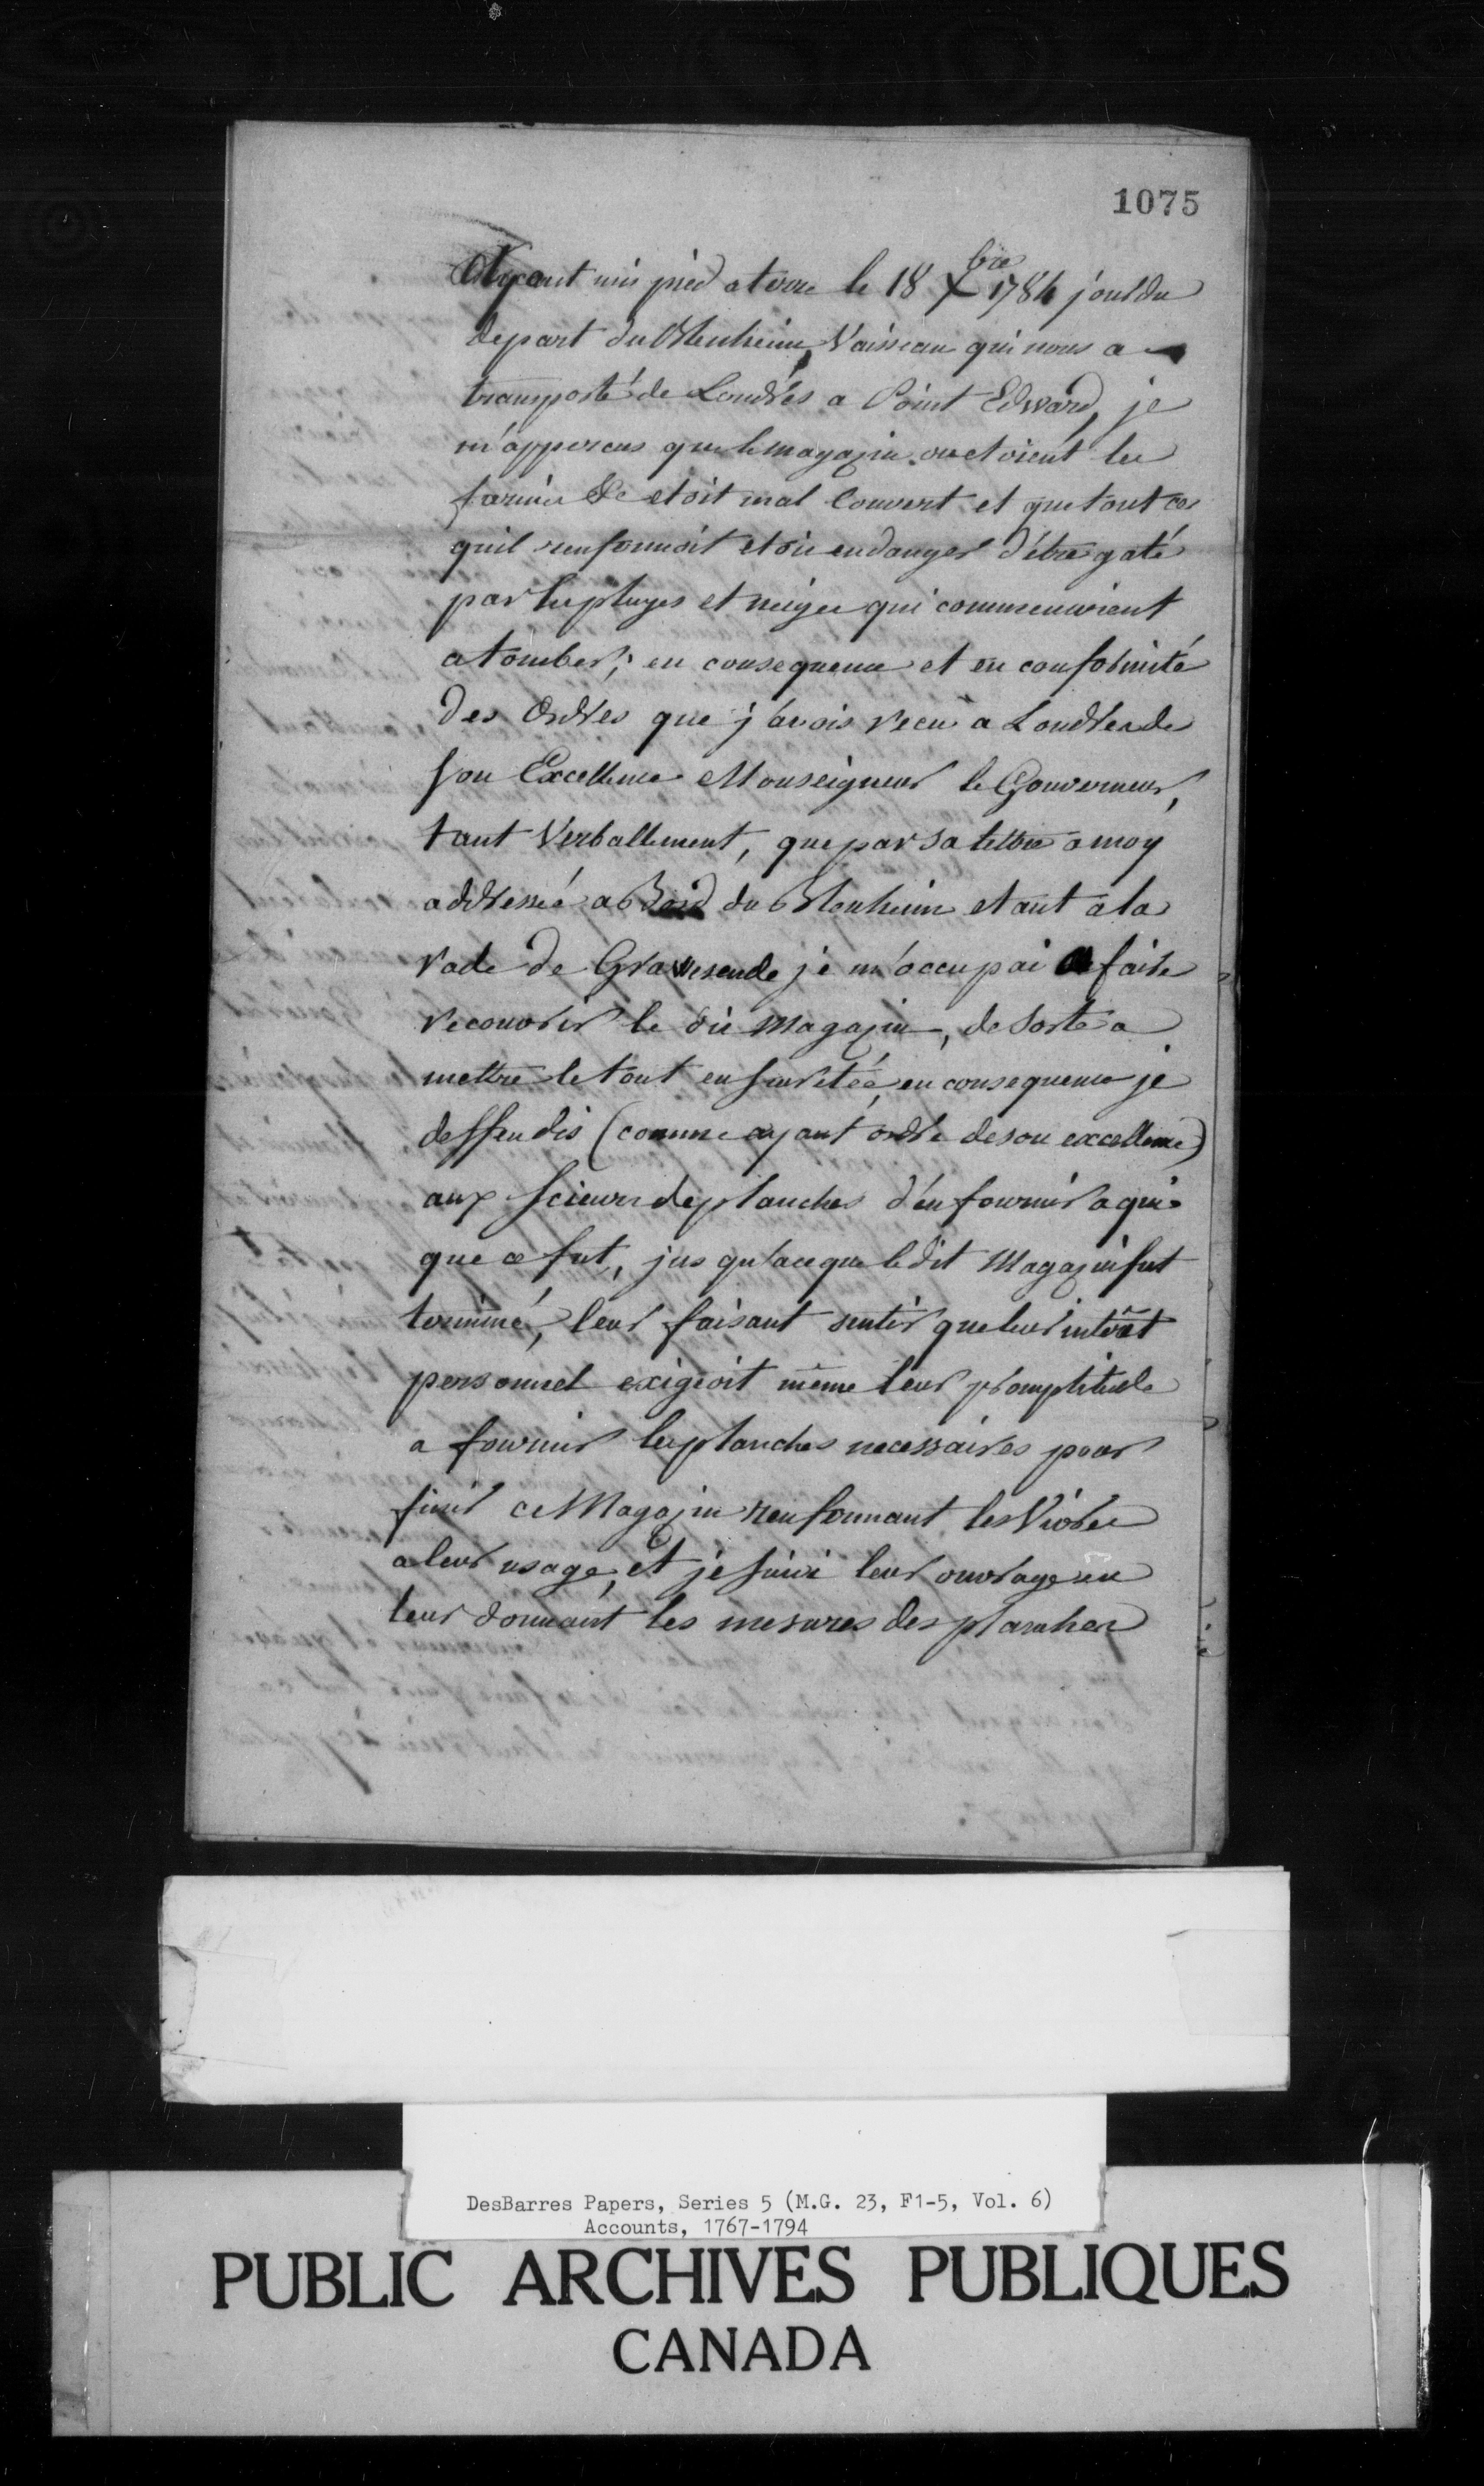 1075
Ayant mis pied a terre le 18 Xbre 1784 jour du
depart du Blenheim, Vaisseau qui nous a
transporté de Londres a Point Edward, je
m'apperçus que le magazin ou etoient les
farines &c etoit mal Couvert et que tout ce
quil renfermoit etoit en danger d'être gaté
par les pluyes et neiges qui commencoient
a tomber; en consequence et en conformité
des Ordres que j'avois recu a Londres de
son Excellence Monseigneur le Gouverneur,
tant Verballement, que par sa lettre a moy
addressée a Bord du Blenheim etant à la
rade de Gravesende je m'occupai a faire
recouvrir le dit magazin, de sorte a
mettre le tout en sureteé, en consequence je
deffendis (comme ayant ordre de son excellence)
aux scieurs de planches d'en fournir a qui
que ce fut, jus qu'a ce que le dit Magazin fut
terminé, leur faisant sentir que leur intérêt
personnel exigeoit même leur promptitude
a fournir les planches necessaires pour
finir ce Magazin renfermant les Vivres
a leur usage, et je suivi leur ouvrage en
leur donnant les mesures des planches
DesBarres Papers, Series 5 (M.G. 23, F1-5, Vol. 6)
Accounts, 1767-1794
PUBLIC ARCHIVES PUBLIQUES
CANADA